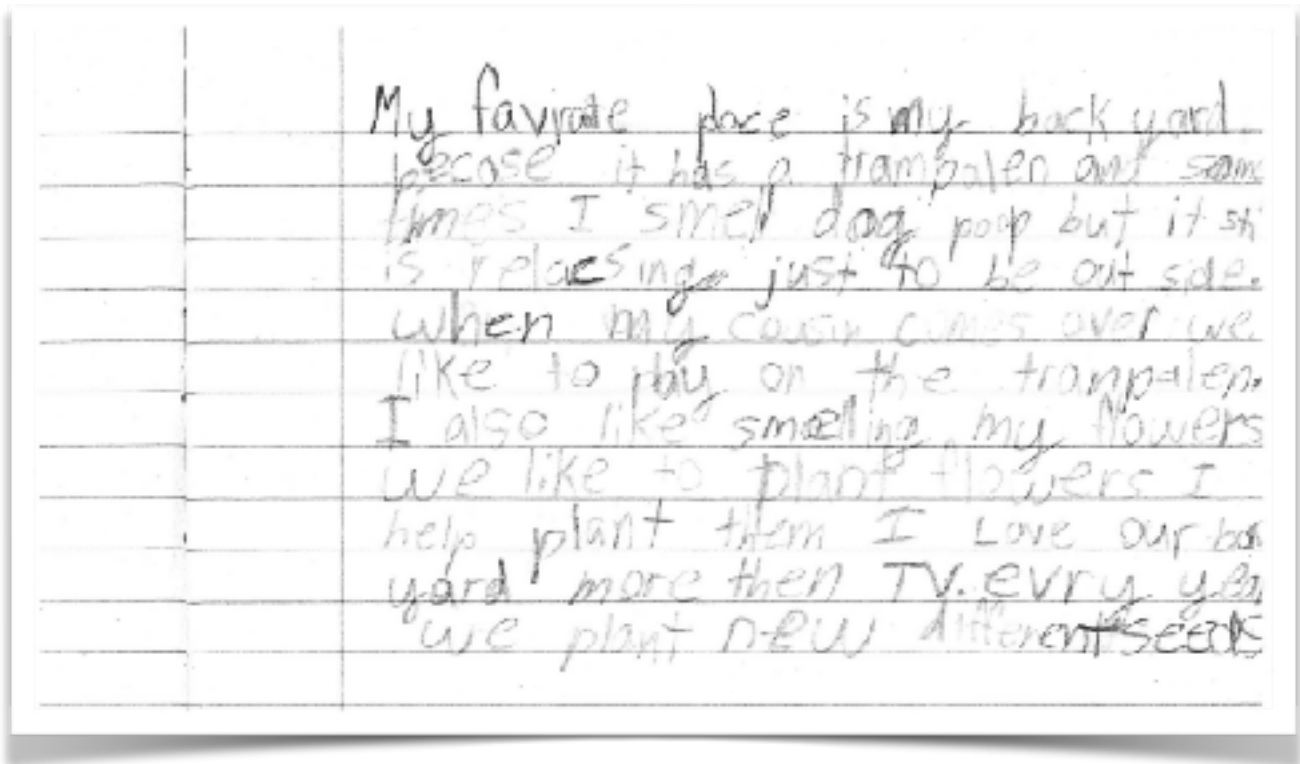 My favirate place is my back yard.
becase it has a trampalen and some
times I smell dog poop but it sti
is relacsing just to be out side.
when my cousin comes over we
like to play on the trampalen.
I also like smelling my flowers
we like to plant flowers I
help plant them I Love our bak
yard more then TV. evry year
we plant new different seeds